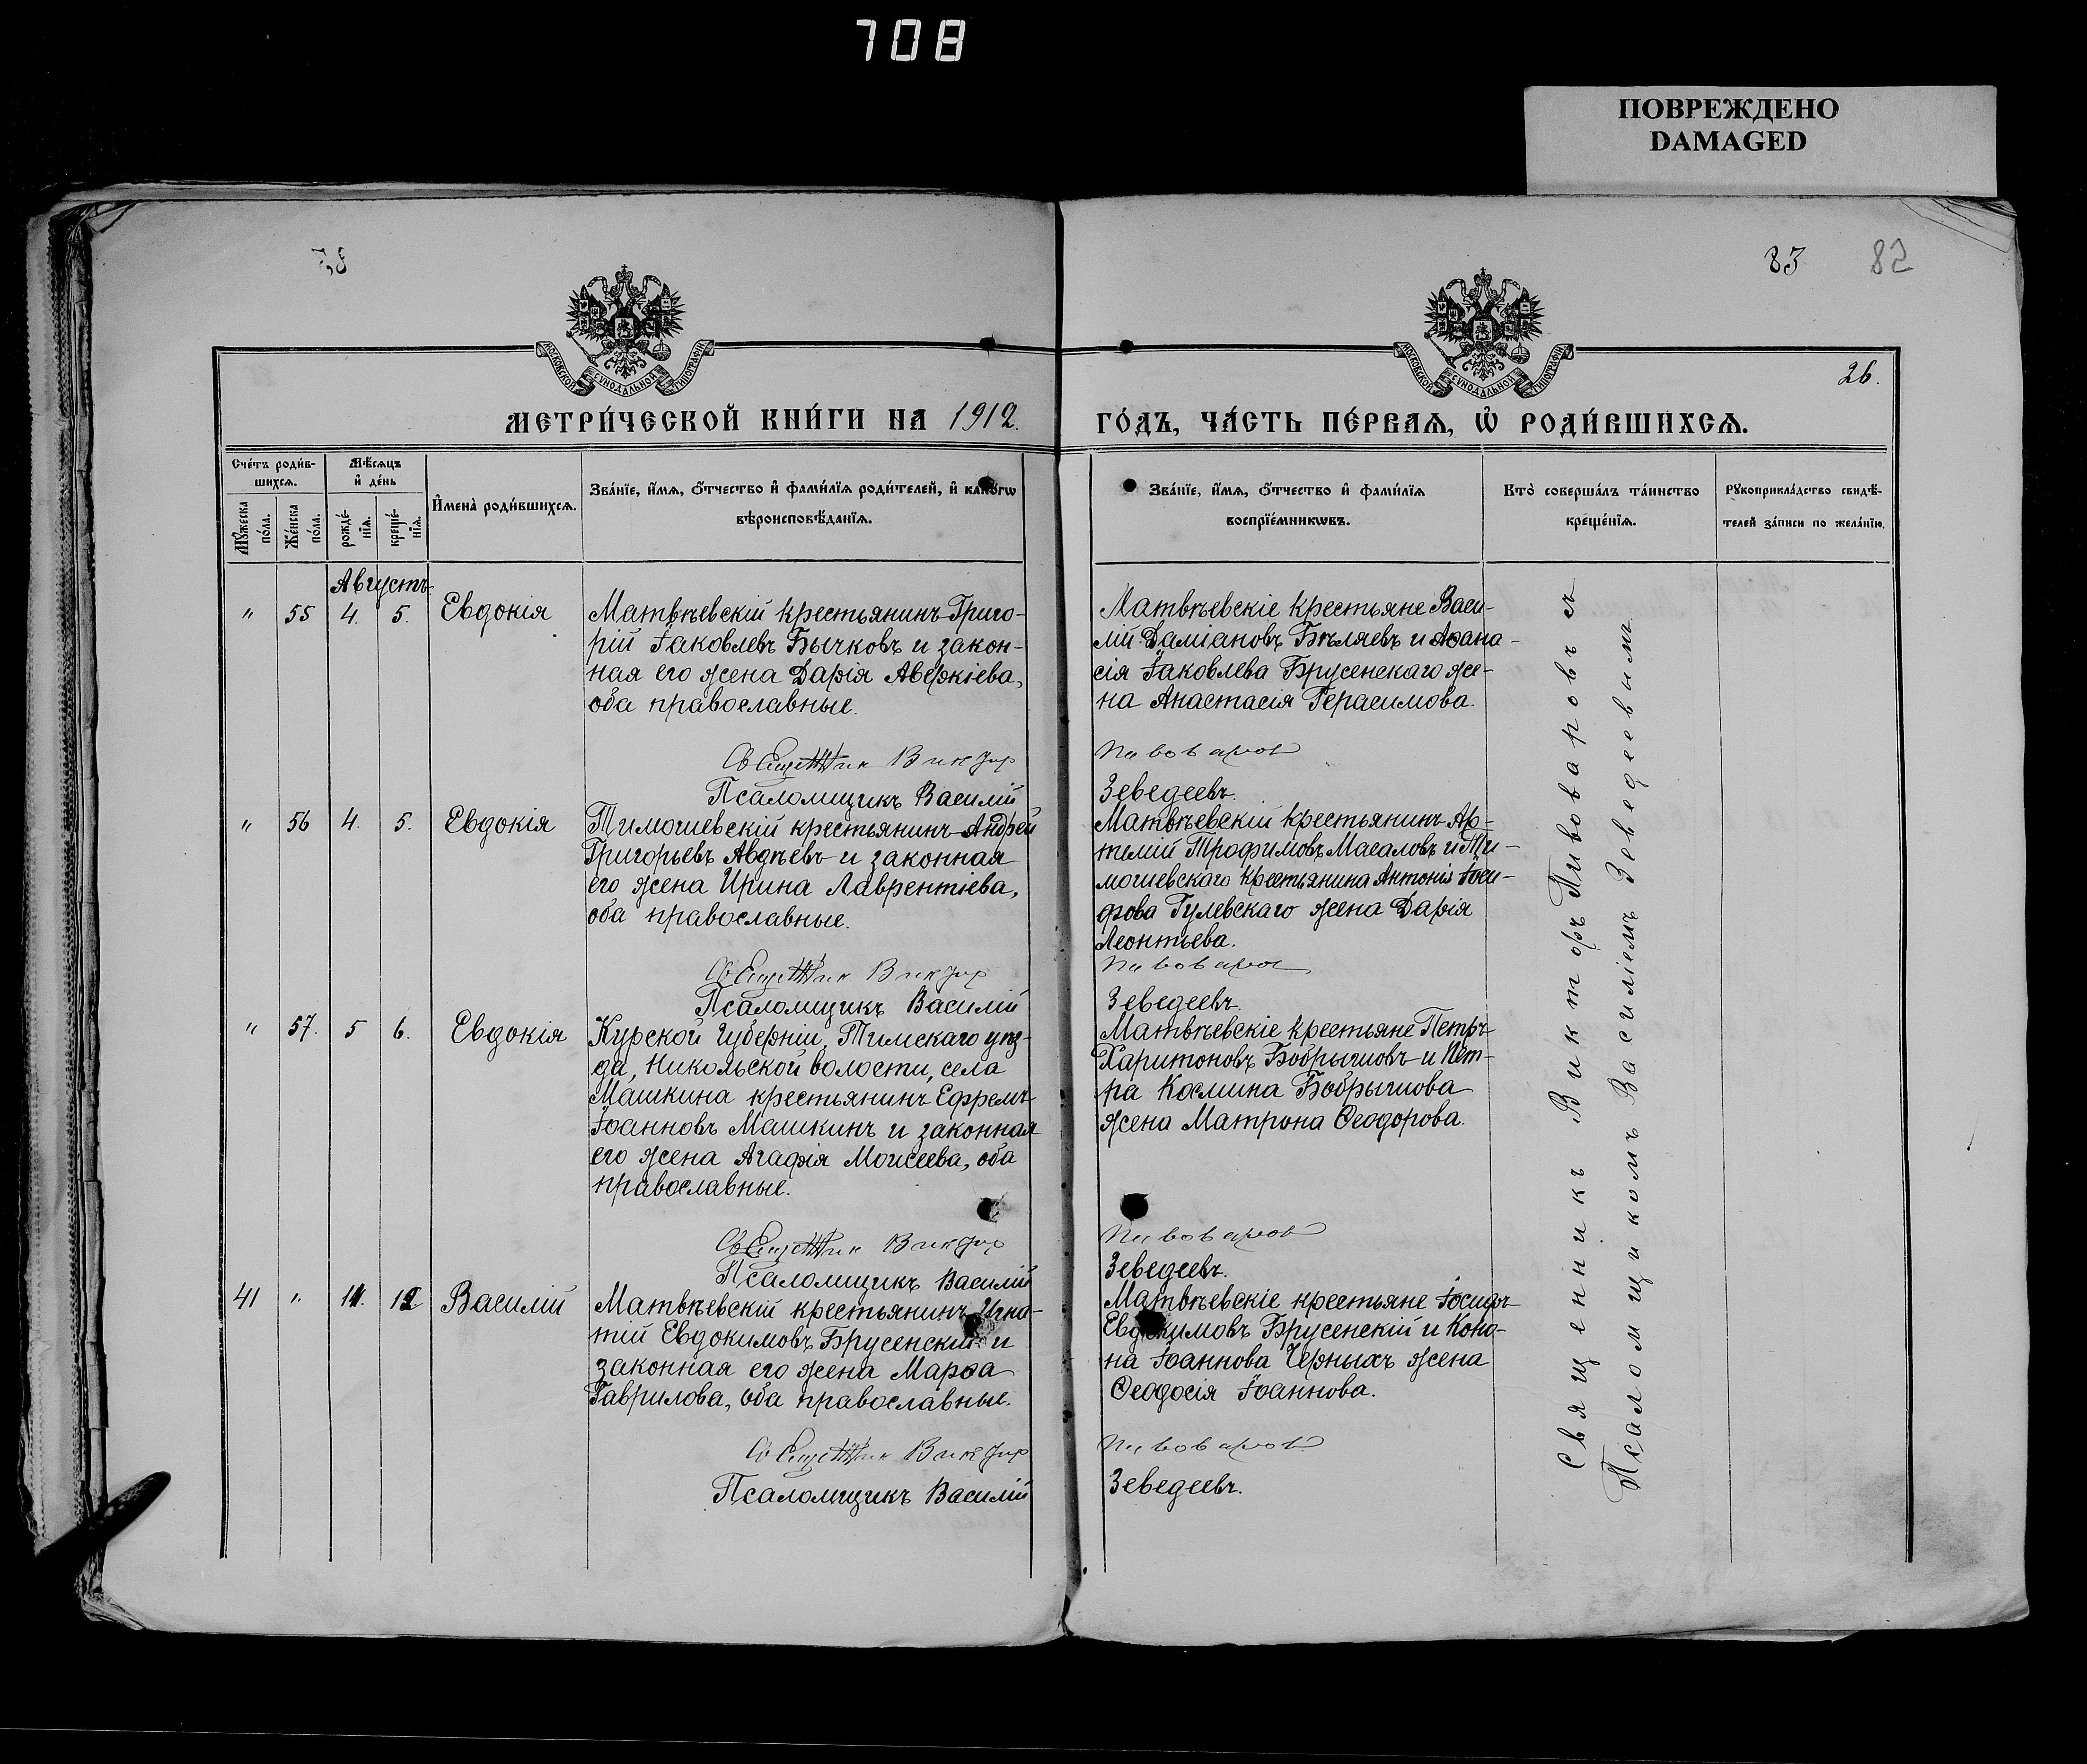 708
ПОВРЕЖДЕНО
DAMAGED
83
82
МОСКОВСКОЙ СѴНОДАЛЬНОЙ ТИПОГРАФІИ
МОСКОВСКОЙ СѴНОДАЛЬНОЙ ТИПОГРАФІИ
26.
МЕТРИ́ЧЕСКОЙ КНИ́ГИ НА 1912.
ГО́ДЪ, ЧА́СТЬ ПЕ́РВАѦ, Ѡ҆ РОДИ́ВШИХСѦ.
Сче́тъ роди́в-
шихсѧ.
Мѣ́сѧцъ
и҆ де́нь
Мꙋ́жеска
по́ла.
Же́нска
по́ла.
рожде́-
нїѧ.
креще́-
нїѧ.
И҆мена̀ роди́вшихсѧ.
Зва́нїе, и҆́мѧ, ѻ҆́тчество и҆ фами́лїѧ роди́телей, и҆ како́гѡ
вѣроисповѣ́данїѧ.
Зва́нїе, и҆́мѧ, ѻ҆́тчество и҆ фами́лїѧ
воспрїе́мникѡвъ.
Кто̀ соверша́лъ та́инство
креще́нїѧ.
Рꙋкоприкла́дство свидѣ́-
телей за́писи по жела́нїю.
Августъ
" 55 4. 5. Евдокія
Матвѣевскій крестьянинъ Григо-
рій Іаковлевъ Бычковъ и закон-
ная его жена Дарія Аверкіева,
оба православные.
Священник Виктор
Псаломщикъ Василій
Матвѣевскіе крестьяне Васи-
лій Даміановъ Бѣляевъ и Аѳана-
сія Іаковлева Брусенскаго же-
на Анастасія Герасимова.
Пивоваров
Зеведеевъ.
" 56 4. 5. Евдокія
Тимошевскій крестьянинъ Андрей
Григорьевъ Авдѣевъ и законная
его жена Ирина Лаврентіева,
оба православные.
Священник Виктор
Псаломщикъ Василій
Матвѣевскій крестьянинъ Ар-
темій Трофимовъ Масаловъ и Ти-
мошевскаго крестьянина Антонія Іоси-
фова Гулевскаго жена Дарія
Леонтьева.
Пивоваров
Зеведеевъ.
" 57. 5 6. Евдокія
Курской Губерніи, Тимскаго уѣз-
да, Никольской волости, села
Машкина крестьянинъ Ефремъ
Іоанновъ Машкинъ и законная
его жена Агафія Моисеева, оба
православные.
Священник Виктор
Псаломщикъ Василій
Матвѣевскіе крестьяне Петръ
Харитоновъ Бобрышовъ и Пет-
ра Космина Бобрышова
жена Матрона Ѳеодорова.
Пивоваров
Зеведеевъ.
41 " 11. 12 Василій
Матвѣевскій крестьянинъ Игна-
тій Евдокимовъ Брусенскій и
законная его жена Марѳа
Гаврилова, оба православные.
Священник Виктор
Псаломщикъ Василій
Матвѣевскіе крестьяне Іосифъ
Евдокимовъ Брусенскій и Коно-
на Іоаннова Черныхъ жена
Ѳеодосія Іоаннова.
Пивоваров
Зеведеевъ.
Священникъ Викторъ Пивоваровъ съ
Псаломщикомъ Василіемъ Зеведеевымъ